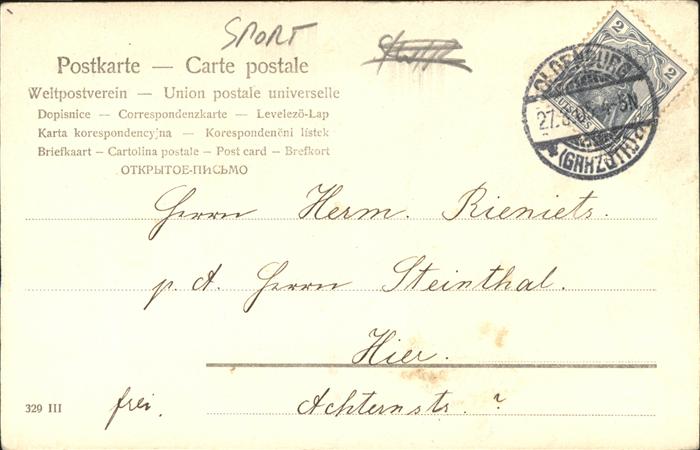 SPORT
Postkarte — Carte postale
Weltpostverein — Union postale universelle
Dopisnice — Correspondenzkarte — Levelező-Lap
Karta korespondencyjna — Korespondenční lístek
Briefkaart — Cartolina postale — Post card — Brefkort
ОТКРЫТОЕ-ПИСЬМО
2 2
OLDENBURG
27.
4-5N
(GRHZGTH.)
Herrn Herm. Rieniets.
p. A. Herrn Steinthal.
Hier.
329 III
frei.
Achternstr. ?